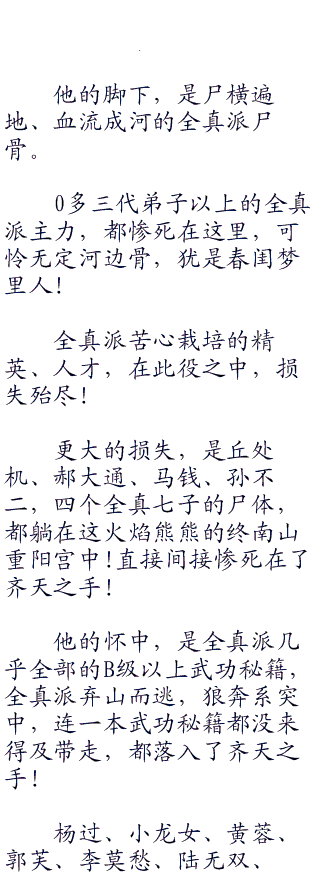 他的脚下，是尸横遍
地、血流成河的全真派尸
骨。
0多三代弟子以上的全真
派主力，都惨死在这里，可
怜无定河边骨，犹是春闺梦
里人!
全真派苦心栽培的精
英、人才，在此役之中，损
失殆尽!
更大的损失，是丘处
机、郝大通、马钱、孙不
二，四个全真七子的尸体，
都躺在这火焰熊熊的终南山
重阳宫中!直接间接惨死在了
齐天之手!
他的怀中，是全真派几
乎全部的B级以上武功秘籍，
全真派弃山而逃，狼奔系突
中，连一本武功秘籍都没来
得及带走，都落入了齐天之
手!
杨过、小龙女、黄蓉、
郭芙、李莫愁、陆无双、